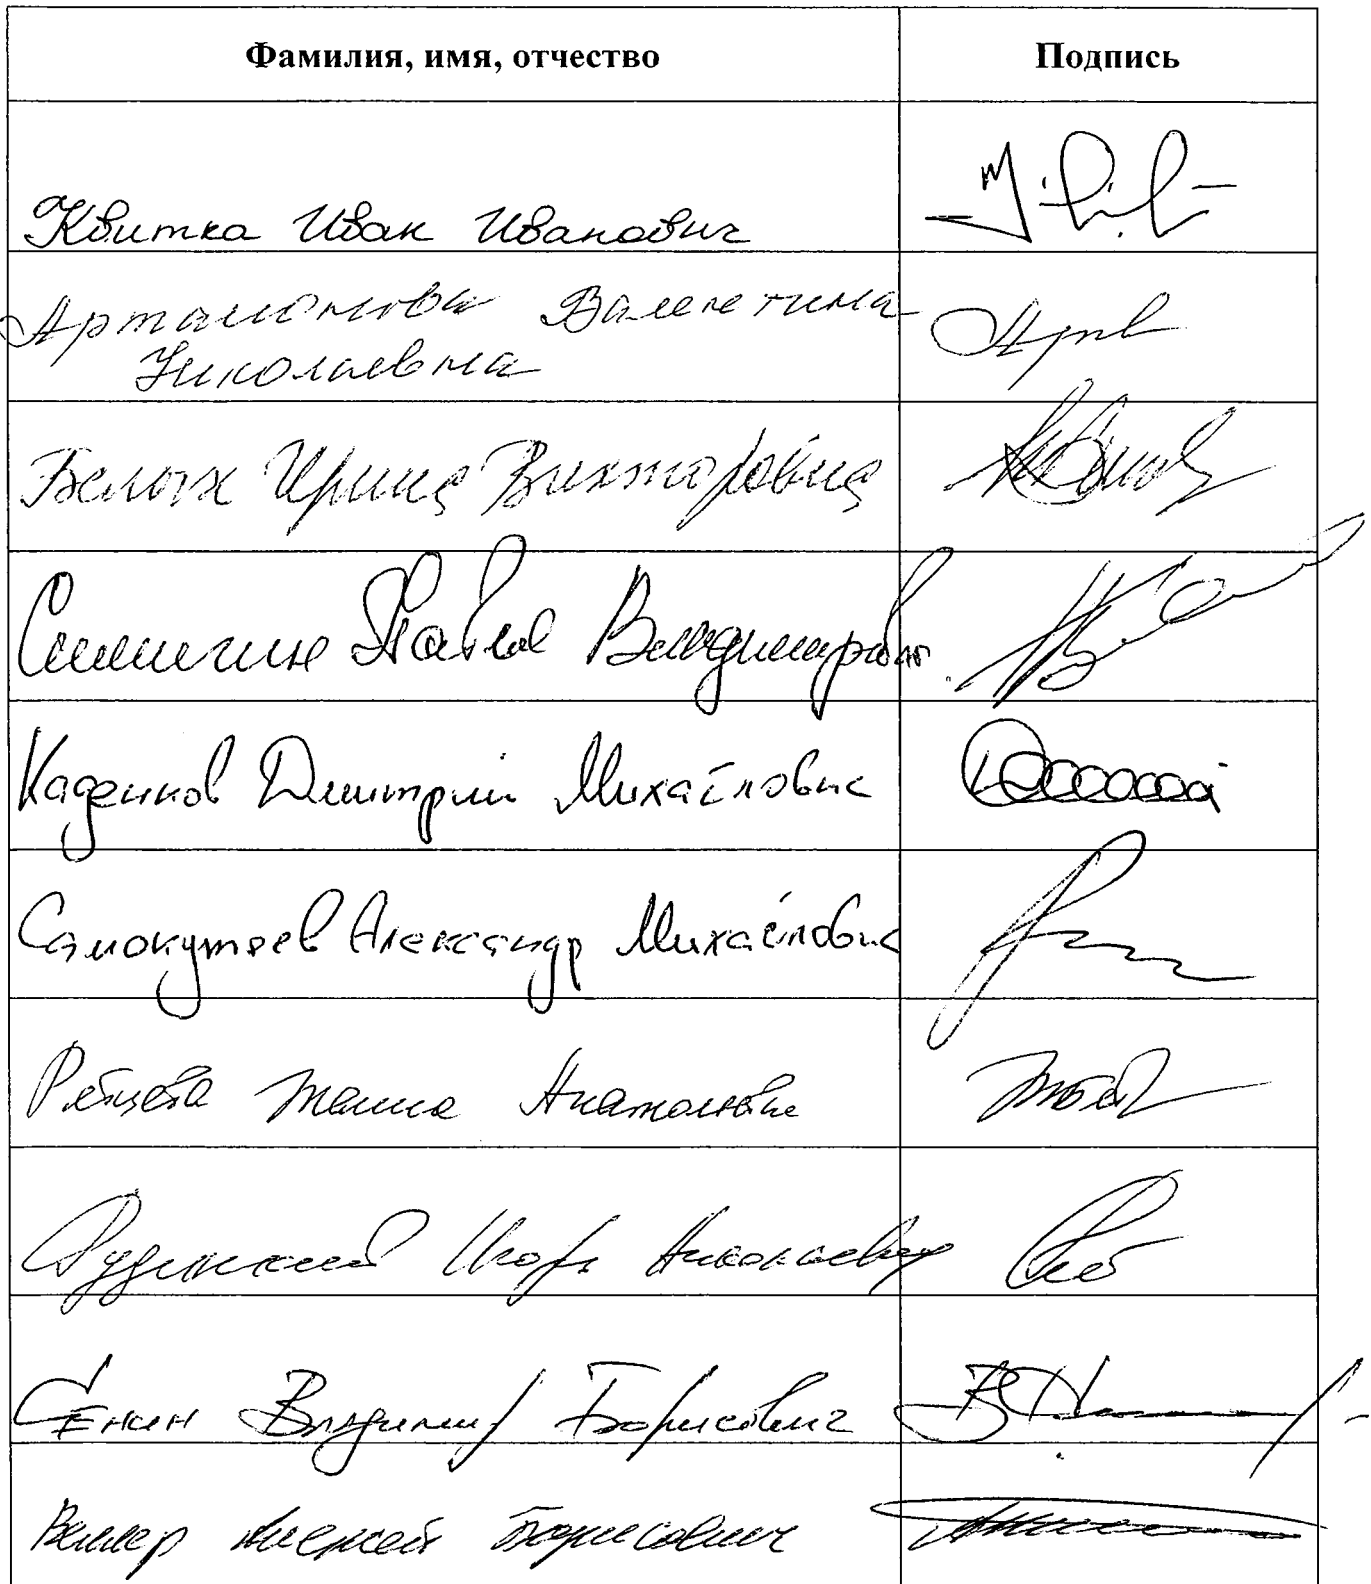 Фамилия, имя, отчество Подпись
Квитка Иван Иванович
Артамонова Валентина
Николаевна
Белых Ирина Викторовна
Симигин Павел Владимирович
Каденков Дмитрий Михайлович
Самокутяев Александр Михайлович
Рябцева Жанна Анатольевна
Рудинский Игорь Николаевич
Сенин Владимир Борисович
Веллер Алексей Борисович